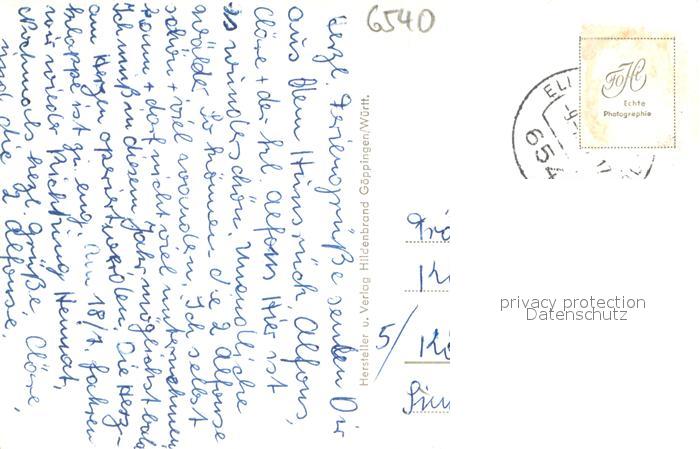 6540
Herzl. Feriengrüße senden Dir
aus dem Hunsrück Alfons,
Cläre + der kl. Alfons. Hier ist
es wunderschön. Unendliche
Wälder. Da können die 2 Alfonse
schön + viel wandern. Ich selbst
kann + darf nicht viel unternehmen.
Ich muß in diesem Jahr möglichst bald
am Herzen operiert werden. Die Herz-
klappe ist zu eng. Am 18/7. fahren
wir wieder Richtung Heimat.
Nochmals herzl. Grüße, Cläre,
und die 2 Alfonse.
Hersteller u. Verlag Hildenbrand Göppingen/Württ.
FoHi
Echte
Photographie
ELL
654
5/
privacy protection
Datenschutz